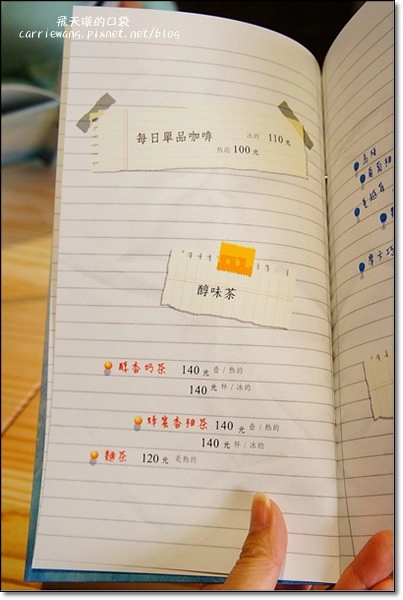 飛天璇的口袋
carriewang.pixnet.net/blog
每日單品咖啡 冰的 110元
熱的 100元
醇味茶
醇香奶茶 140元 壺/熱的
140元 杯/冰的
蜂蜜香甜茶 140元 壺/熱的
140元 杯/冰的
麵茶 120元 是熱的